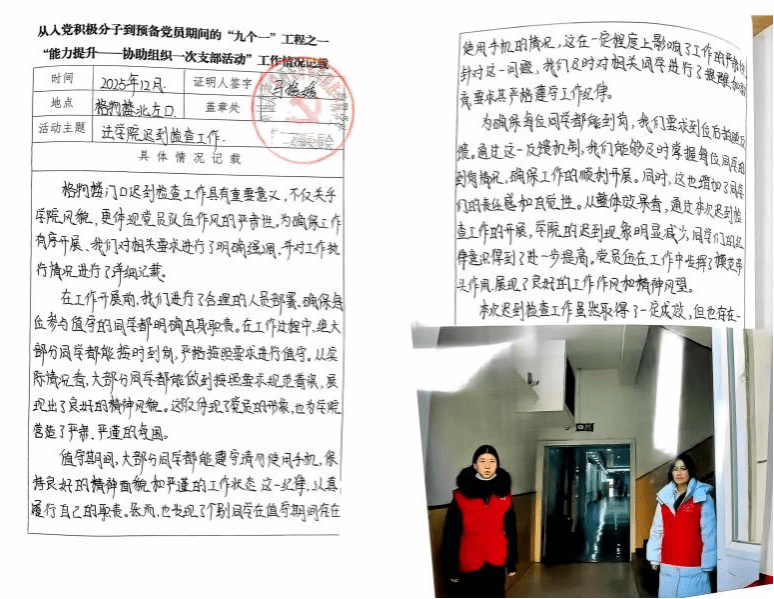 从入党积极分子到预备党员期间的“九个一”工程之一
“能力提升——协助组织一次支部活动”工作情况记载
时间 2025年12月. 证明人签字
地点 格物楼北门口 盖章处
活动主题 法学院迟到检查工作.
具体情况记载
格物楼门口迟到检查工作具有重要意义，不仅关乎
学院风貌，更体现党员队伍作风的严肃性。为确保工作
有序开展、我们对相关要求进行了明确强调，并对工作执
行情况进行了详细记载。
在工作开展前，我们进行了合理的人员部署，确保每
位参与值守的同学都明确自身职责。在工作过程中，绝大
部分同学都能按时到岗，严格按照要求进行值守。从实
际情况看，大部分同学都能做到按照要求规范着装，展
现出了良好的精神风貌。这不仅体现了党员的形象，也为学院
营造了严肃、严谨的氛围。
值守期间，大部分同学都能遵守请勿使用手机，保
持良好的精神面貌和严谨的工作状态这一纪律，认真
履行自己的职责。然而，也发现了个别同学在值守期间存在
使用手机的情况，这在一定程度上影响了工作的严肃性
针对这一问题，我们及时对相关同学进行了提醒和
育，要求其严格遵守工作纪律。
为确保每位同学都能到岗，我们要求到位后拍照反
馈。通过这一反馈机制，我们能够及时掌握每位同学的
到岗情况，确保工作的顺利开展。同时，这也增加了同学
们的责任感和自觉性。从整体效果看，通过本次迟到检
查工作的开展，学院的迟到现象明显减少，同学们的纪
律意识得到了进一步提高。党员也在工作中发挥了模范带
头作用，展现了良好的工作作风和精神风貌。
本次迟到检查工作虽然取得了一定成效，但也存在一